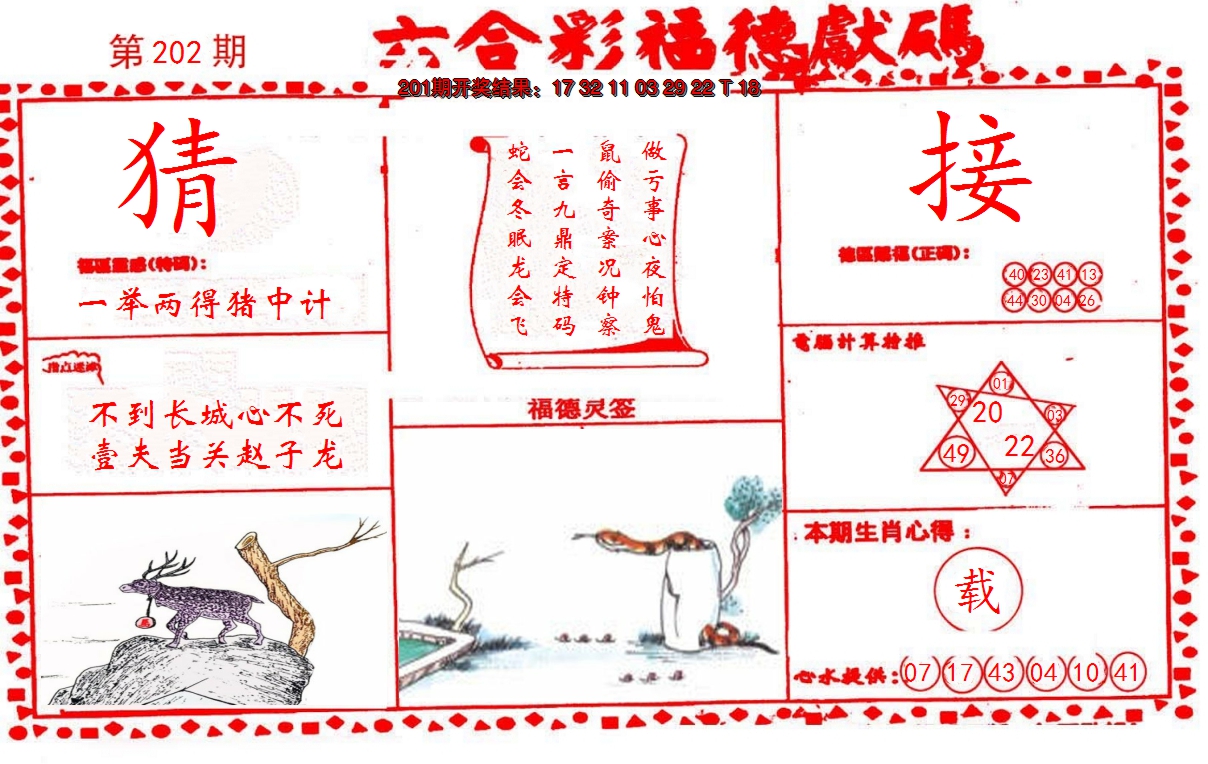 第 202 期
六合彩福德獻碼
201期开奖结果：17 32 11 03 29 22 T 18
猜
福區靈感(特碼)：
一举两得猪中计
指点迷津
不到长城心不死
壹夫当关赵子龙
做亏事心夜怕鬼
鼠偷奇案况钟察
一言九鼎定特码
蛇会冬眠龙会飞
福德灵签
接
德區賜福(正碼)：
40 23 41 13
44 30 04 26
電腦計算抢推
01
29 20 03
49 22 36
07
本期生肖心得：
载
心水提供：07 17 43 04 10 41